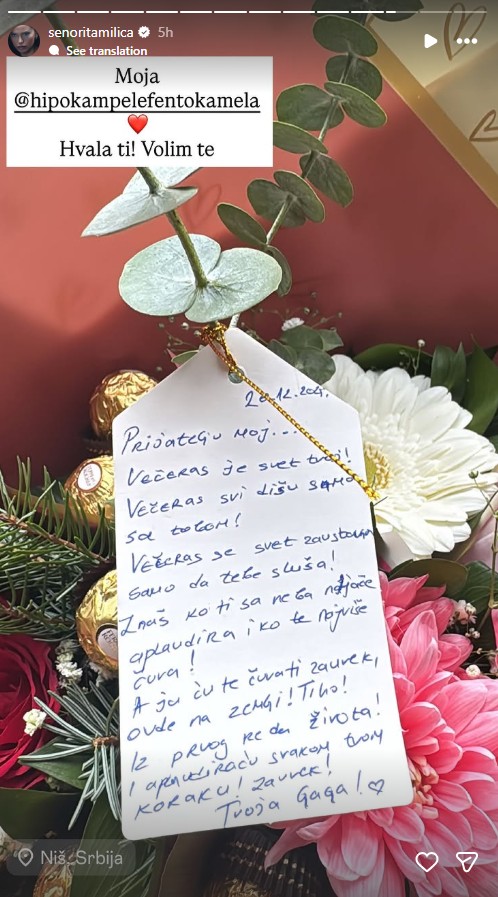 senoritamilica 5h
See translation
Moja
@hipokampelefentokamela
❤️
Hvala ti! Volim te
Prijatelju moj...
Večeras je svet tvoj!
Večeras svi dišu samo
sa tobom!
Večeras se svet zaustavlja
samo da tebe sluša!
Znaš ko ti sa neba najjače
aplaudira i ko te najviše
čuva!
A ja ću te čuvati zauvek,
ovde na zemlji! Tiho!
Iz prvog reda života!
I aplaudiraću svakom tvom
koraku! Zauvek!
Tvoja Gaga! ♡
Niš, Srbija